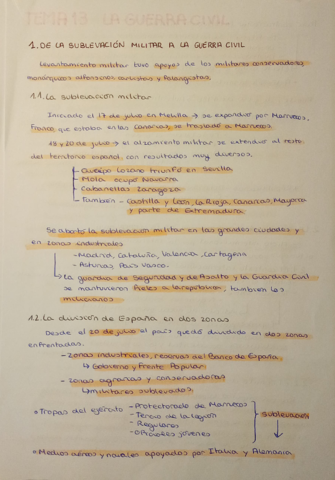 TEMA 13 LA GUERRA CIVIL
1. DE LA SUBLEVACIÓN MILITAR A LA GUERRA CIVIL
Levantamiento militar tuvo apoyos de los militares conservadores,
monárquicos alfonsinos, carlistas y falangistas.
1.1. La sublevación militar
Iniciado el 17 de julio en Melilla → se expandió por Marruecos,
Franco que estaba en las Canarias, se trasladó a Marruecos.
18 y 20 de julio → el alzamiento militar se extendió al resto
del territorio español, con resultados muy diversos.
- Queipo Llano triunfó en Sevilla
- Mola ocupó Navarra
- Cabanellas Zaragoza
- También - Castilla y León, La Rioja, Canarias, Mallorca
y parte de Extremadura
Se abortó la sublevación militar en las grandes ciudades y
en zonas industriales
- Madrid, Cataluña, Valencia, Cartagena
- Asturias, País Vasco.
↳ La guardia de Seguridad y de Asalto y la Guardia Civil
se mantuvieron fieles a la república, también los
milicianos
1.2. La división de España en dos zonas
Desde el 20 de julio el país quedó dividido en dos zonas
enfrentadas.
- Zonas industriales, reservas del Banco de España
↳ Gobierno y Frente Popular
- Zonas agrarias y conservadoras
↳ militares sublevados.
* Tropas del ejército - Protectorado de Marruecos
- Tercio de la Legión
- Regulares
- Oficiales jóvenes
sublevación
* Medios aéreos y navales apoyados por Italia y Alemania